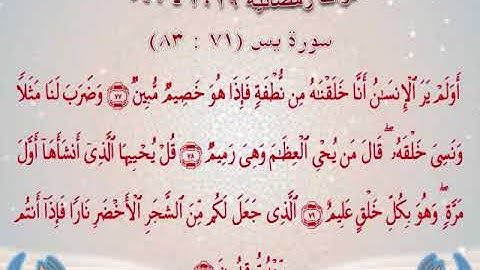 سورة يس (٧١ : ٨٣)
أَوَلَمْ يَرَ ٱلْإِنسَـٰنُ أَنَّا خَلَقْنَـٰهُ مِن نُّطْفَةٍ فَإِذَا هُوَ خَصِيمٌ مُّبِينٌ ۝٧٧ وَضَرَبَ لَنَا مَثَلًا
وَنَسِىَ خَلْقَهُۥ ۖ قَالَ مَن يُحْىِ ٱلْعِظَـٰمَ وَهِىَ رَمِيمٌ ۝٧٨ قُلْ يُحْيِيهَا ٱلَّذِىٓ أَنشَأَهَآ أَوَّلَ
مَرَّةٍ ۖ وَهُوَ بِكُلِّ خَلْقٍ عَلِيمٌ ۝٧٩ ٱلَّذِى جَعَلَ لَكُم مِّنَ ٱلشَّجَرِ ٱلْأَخْضَرِ نَارًا فَإِذَآ أَنتُم